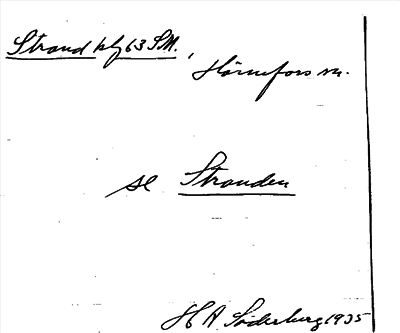 Strand klf 63 SM.,
Hörnefors sn.
se Stranden
H A Söderberg 1935